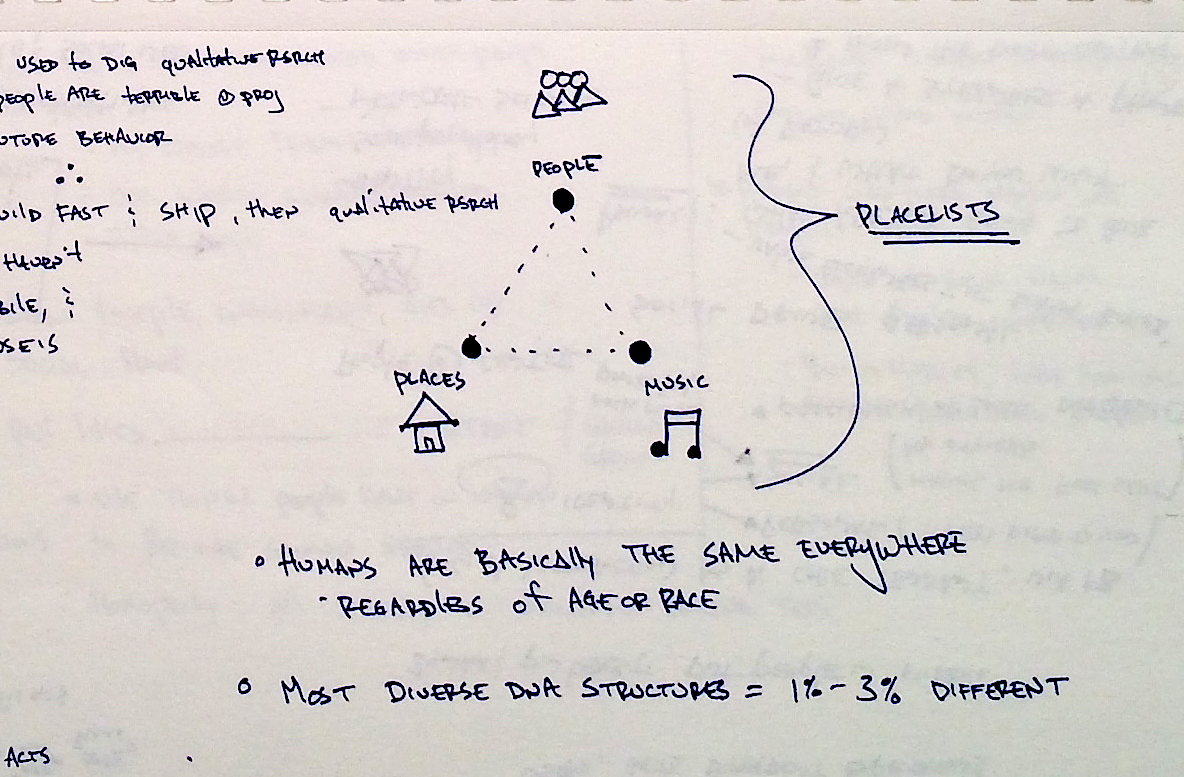 USED to DIG QUALITATIVE RSRCH
PEOPLE ARE TERRIBLE @ PROJ
BEHAVIOR
∴
FAST & SHIP, then QUALITATIVE RSRCH
PEOPLE
PLACELISTS
PLACES
MUSIC
° HUMANS ARE BASICALLY THE SAME EVERYWHERE
· REGARDLESS OF AGE OR RACE
° MOST DIVERSE DNA STRUCTURES = 1% - 3% DIFFERENT
ACTS